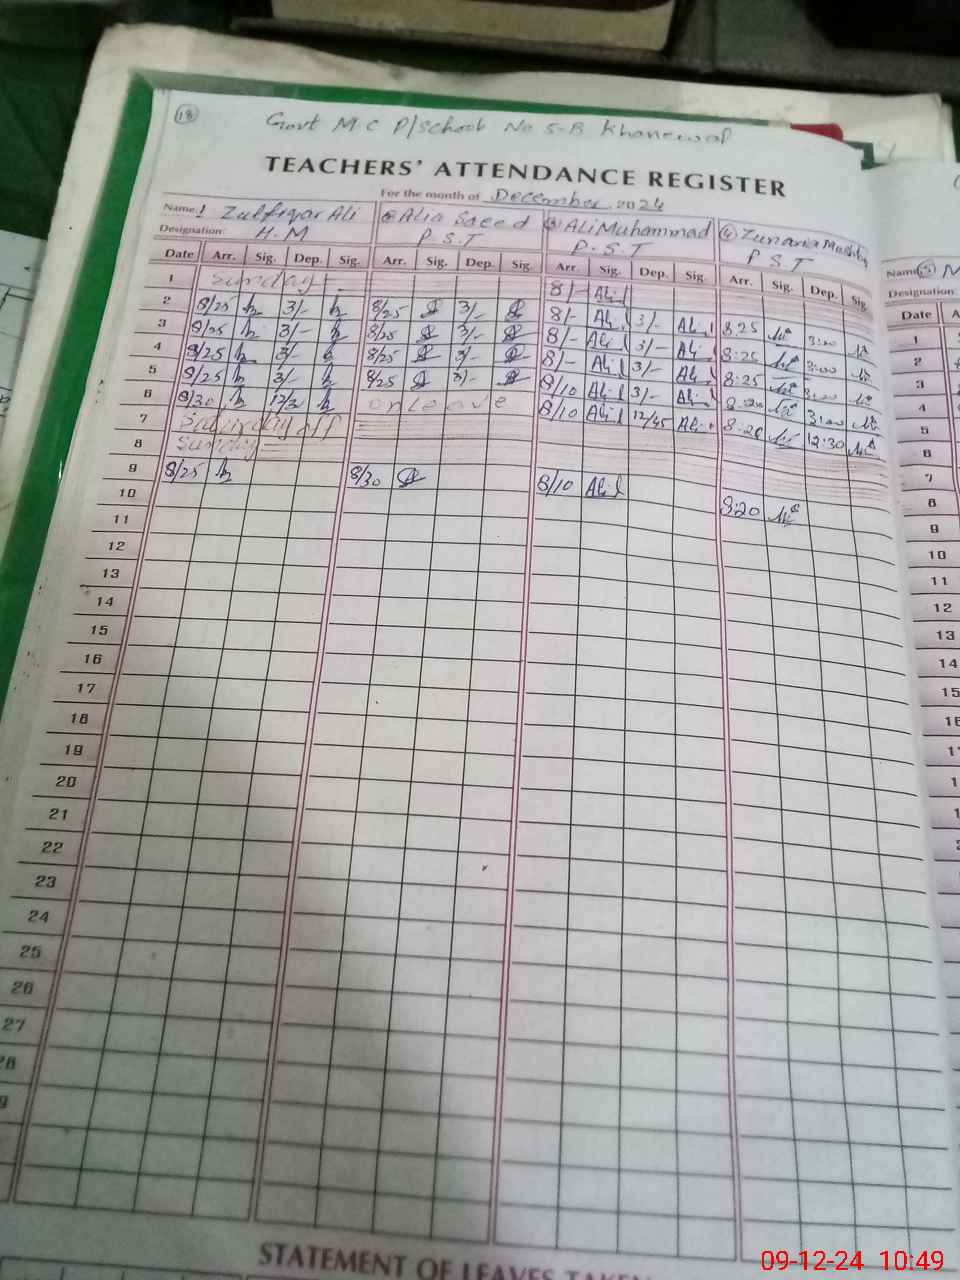 18
Govt M.C P/School No 5-B Khanewal
TEACHERS' ATTENDANCE REGISTER
For the month of December 2024
Name: 1 Zulfiqar Ali ② Alia Saeed ③ Ali Muhammad ④ Zunaria
Designation: H.M P.S.T P.S.T P S.T
Date Arr. Sig. Dep. Sig. Arr. Sig. Dep. Sig. Arr. Sig. Dep. Sig. Arr. Sig. Dep. Sig.
1 Sunday
2 8/25 3/- 8/25 3/- 8/- Ali 3/- Ali 8:25 3:00
3 8/25 3/- 8/25 3/- 8/- Ali 3/- Ali 8:25 3:00
4 8/25 3/- 8/25 3/- 8/- Ali 3/- Ali 8:25 3:00
5 8/25 3/- 8/25 3/- 8/10 Ali 3/- Ali 8:20 3:00
6 8/30 12/30 on leave 8/10 Ali 12/45 Ali 8:20 12:30
7 Saturday off
8 Sunday
9 8/25 8/30 8/10 Ali 8:20
10
11
12
13
14
15
16
17
18
19
20
21
22
23
24
25
26
27
28
STATEMENT OF LEAVES TAKEN
Name: ⑤ M
Designation:
Date A
1
2
3
4
5
6
7
8
9
10
11
12
13
14
15
09-12-24 10:49